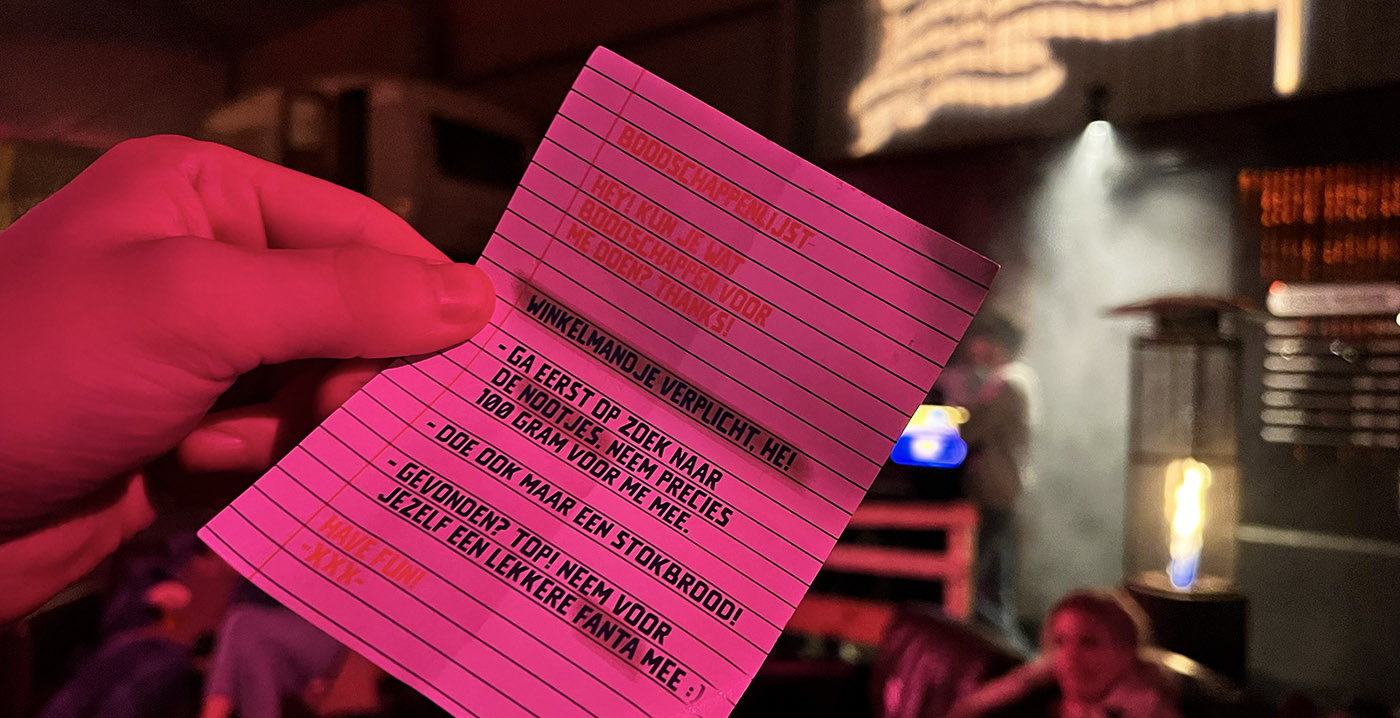 BOODSCHAPPENLIJST-
HEY! KUN JE WAT
BOODSCHAPPEN VOOR
ME DOEN? THANKS!
WINKELMANDJE VERPLICHT, HE!
- GA EERST OP ZOEK NAAR
DE NOOTJES. NEEM PRECIES
100 GRAM VOOR ME MEE.
- DOE OOK MAAR EEN STOKBROOD!
- GEVONDEN? TOP! NEEM VOOR
JEZELF EEN LEKKERE FANTA MEE :)
HAVE FUN!
-XXX-